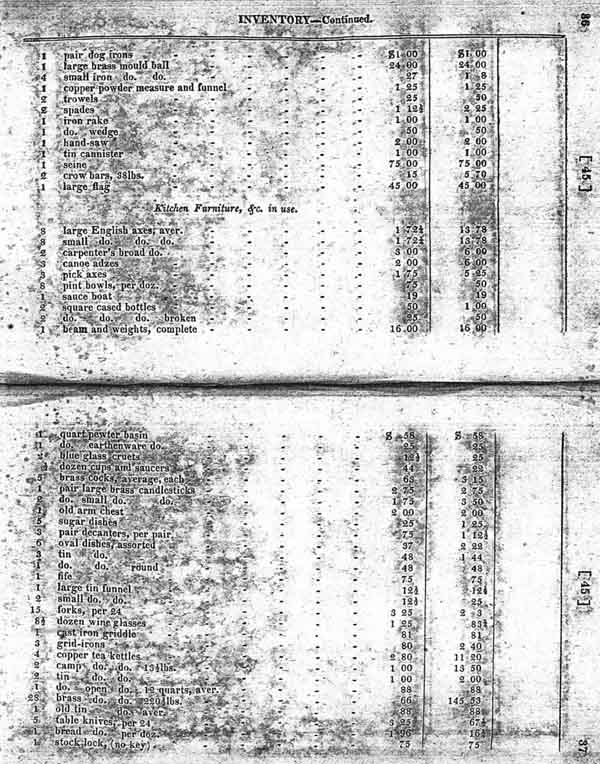 INVENTORY—Continued.
86
1 pair dog irons - - - - $1 00 $1 00
1 large brass mould ball - - - - 24 00 24 00
4 small iron do. do. - - - - 27 1 8
1 copper powder measure and funnel - - - - 1 25 1 25
2 trowels - - - - 25 50
2 spades - - - - 1 12½ 2 25
1 iron rake - - - - 1 00 1 00
1 do. wedge - - - - 50 50
1 hand-saw - - - - 2 00 2 00
1 tin cannister - - - - 1 00 1 00
1 seine - - - - 75 00 75 00
2 crow bars, 38lbs. - - - - 15 5 70
1 large flag - - - - 45 00 45 00
[ 45 ]
Kitchen Furniture, &c. in use.
8 large English axes, aver. - - - - 1 72¼ 13 78
8 small do. do. do. - - - - 1 72¼ 13 78
2 carpenter's broad do. - - - - 3 00 6 00
3 canoe adzes - - - - 2 00 6 00
3 pick axes - - - - 1 75 5 25
8 pint bowls, per doz. - - - - 75 50
1 sauce boat - - - - 19 19
2 square cased bottles - - - - 50 1 00
2 do. do. do. broken - - - - 25 50
1 beam and weights, complete - - - - 16 00 16 00
1 quart pewter basin - - - - $ 58 $ 58
1 do. earthenware do. - - - - 25 25
2 blue glass cruets - - - - 12½ 25
½ dozen cups and saucers - - - - 44 22
5 brass cocks, average, each - - - - 63 3 15
1 pair large brass candlesticks - - - - 2 75 2 75
2 do. small do. do. - - - - 1 75 3 50
1 old arm chest - - - - 2 00 2 00
5 sugar dishes - - - - 25 1 25
pair decanters, per pair - - - - 75 1 12½
6 oval dishes, assorted - - - - 37 2 22
3 tin do. - - - - 48 1 44
1 do. do. round - - - - 48 48
1 fife - - - - 75 75
1 large tin funnel - - - - 12½ 12½
2 small do. do. - - - - 12½ 25
15 forks, per 24 - - - - 3 25 2 3
8½ dozen wine glasses - - - - 1 25 83½
1 cast iron griddle - - - - 81 81
3 grid-irons - - - - 80 2 40
4 copper tea kettles - - - - 2 80 11 20
2 camp do. do. 13½lbs. - - - - 1 00 13 50
2 tin do. do. - - - - 1 00 2 00
1 do. open do. 12 quarts, aver. - - - - 88 88
28 brass do. do. 220½lbs. - - - - 66 145 53
1 old tin do. aver. - - - - 88 88
5 table knives, per 24 - - - - 3 25 67½
1 bread do. per doz. - - - - 1 96 16½
1 stock lock, (no key) - - - - 75 75
[ 45 ]
87